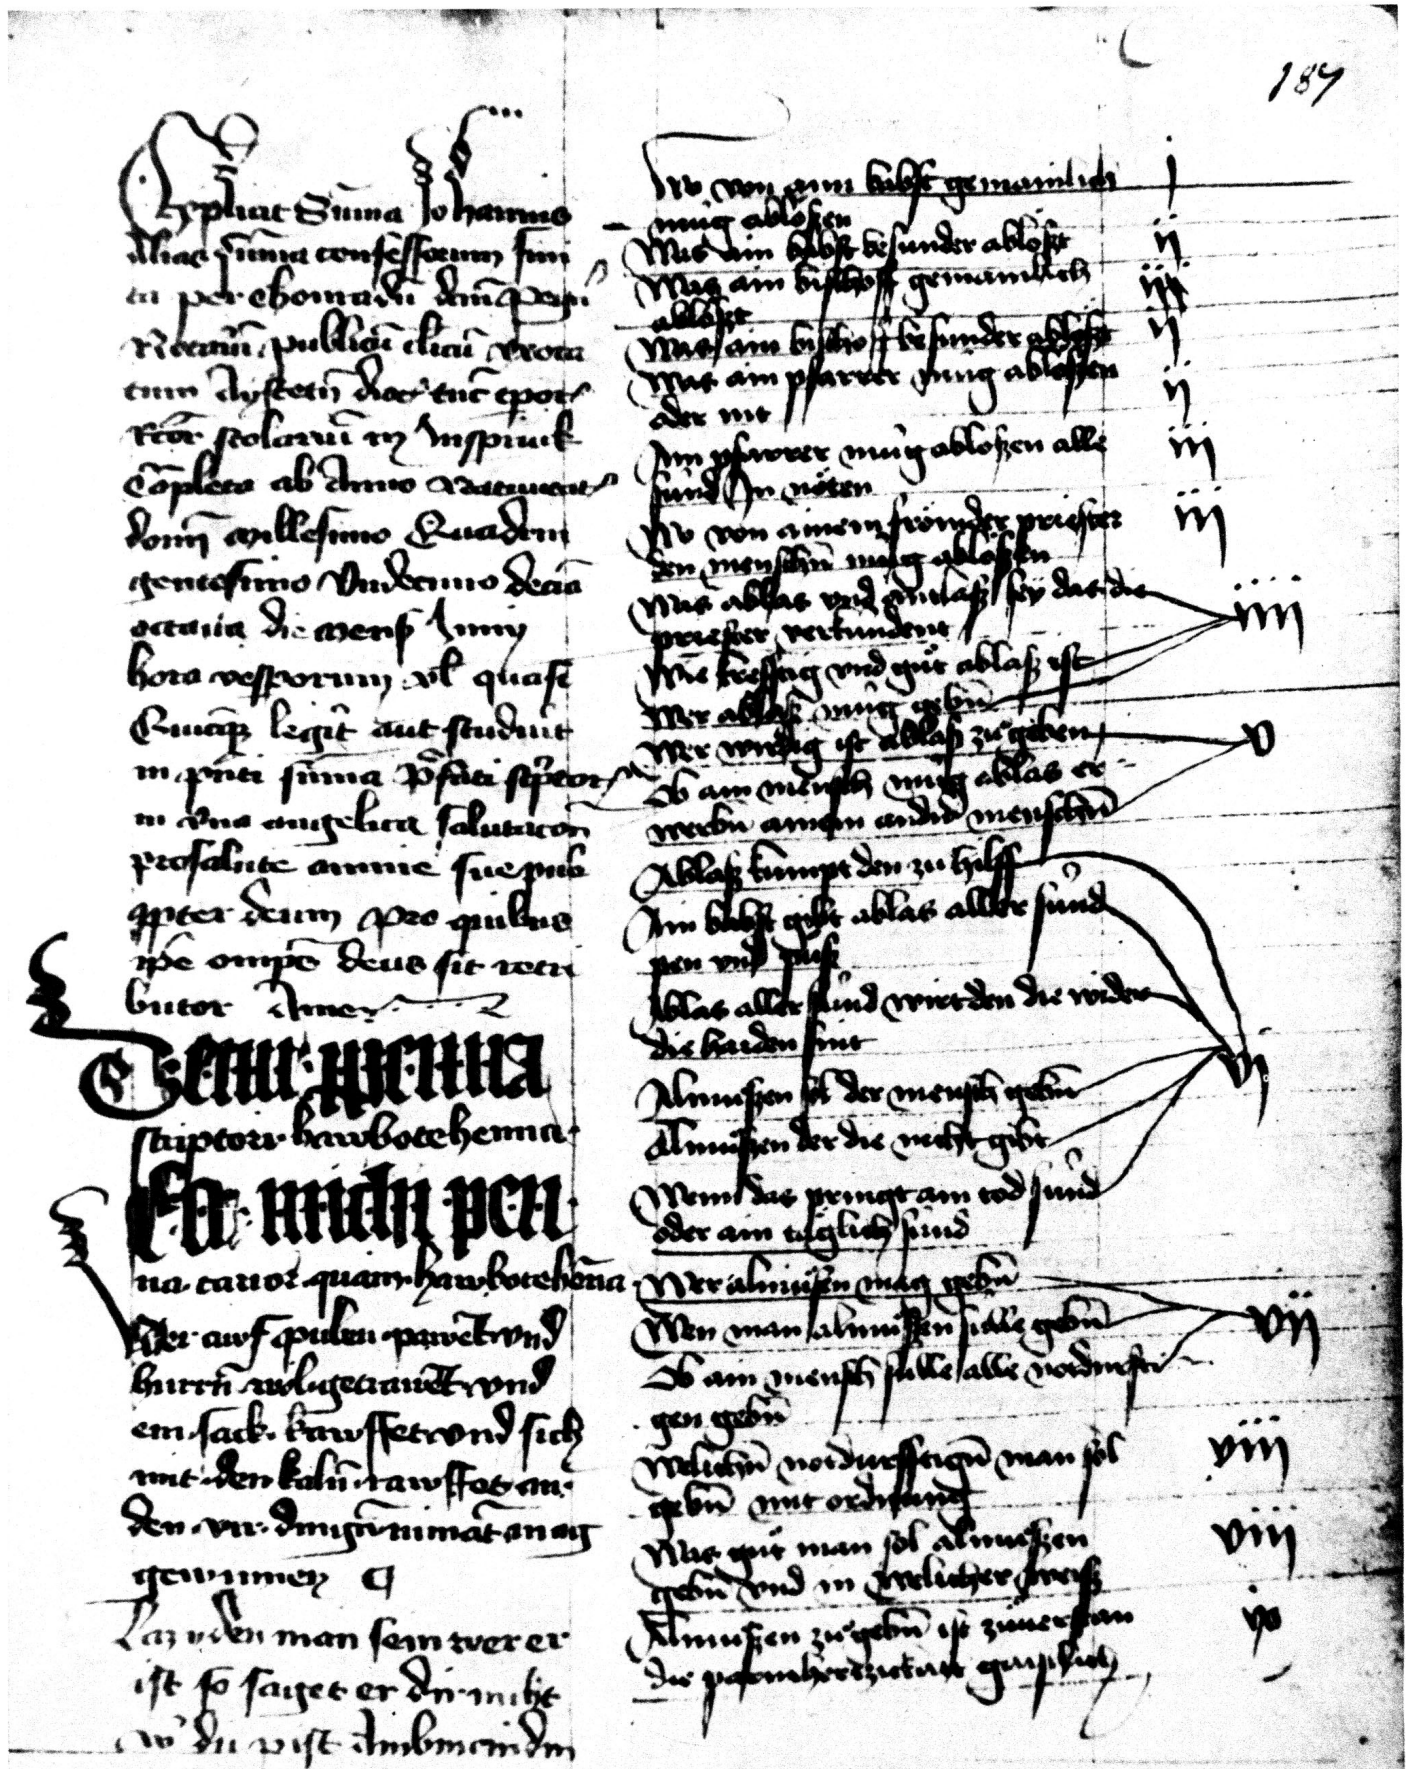 187
Explicit Suma Johannis
alias suma confessorum fini
ta per Chonradu
Notariu publicu clicu
tum Aysteten dioc tuc tpor
Rcor scolarium in Insprukk
Copleta ab Anno Natiuitat
domi Millesimo Quadrin
gentesimo Undecimo decia
octaua die mens Junij
hora vesperorum vl quasi
Quicuqz legit aut studuit
in pnti suma pfati sciptor
in vna angelica salutacon
pro salute anime sue
ppter deum pro quibus
ipe ompe deus sit retri
butor Amen
Detur pro penna
scriptori hawbotehenna
Est michi pen
na carior quam hawbotehenna
Wer awf puluen pawet vnd
hurrn wol getrawet vnd
ein sack kawffet vnd sich
mit den kaln rawffet an
den vir dingen nimat mag
gewinnen
Laz yden man sein wer er
ist so saget er dir niht
wer du pist
Wo von ain babst gemainlich j
mug ablosen
Was ain babst besunder ablost ij
Was ain bischoff gemainlich
ablost
Was ain bischoff besunder ablost
Was ain pfarrer mug ablossen ij
oder nit
Ain pfarrer mug ablossen alle iii
sund In noten
Wo von ainem fromder priester iii
den menschn mug ablossen
Was ablas vnd antlasz sey das die iiii
priester verkundent
Wie krefftig vnd gut ablasz ist
Wer ablasz mug gebn
Wer wirdig ist ablasz zu geben v
Ob ain mensch mug ablas er
werbn ainem andrn menschn
Ablasz kumpt den zu hilff
Ain babst gibt ablas aller sund
pen vnd pusz
Ablas aller sund wirt den die wider
die haiden sint
Almuszen sol der mensch gebn vi
Almuszen der die nicht gibt
Wenn das pringt ain tod sund
oder ain taglich sund
Wer almusen mag gebn
Wen man almuszen sulle gebn vii
Ob ain mensch sulle alle notdurfti
gen gebn
Welichn notdurfftign man sol viii
gebn mit ordnung
Was gut man sol almuszen viii
gebn vnd in welicher weisz
Almuszen zu gebn ist zuuerstan
die parmhertzickait